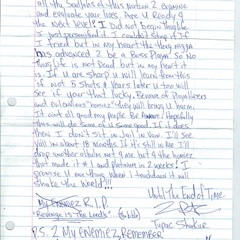 all thy Soulja's of this Nation 2 Examine
and evaluate your lives. Are U Ready 4
the next level? I Did not Begin Thug Life
I just personified it I couldn't stop if
I tried but in my heart the thug nigga
has advanced 2 be a Boss Player. So No
Thug Life is not Dead but in my heart it
is. If U are Sharp U will learn from this
if not 5 Shots & Years later U too will
see if your that lucky. Beware of Pranksters
and envious "homiez" they will bring U harm.
It aint all good my people. Be Aware! Hopefully
this will do some of U some good. If it does
then I didn't sit in Jail in vain. I'll see
Yall in about 18 months If it's still in Me I'll
drop another album not 4 me but 4 the homiez
But made it # 1 and Platinum in 2 weeks! I
promise U one thing when I touchdown it will
shake the World!!!
Until The End of Time
2Pac
Tupac Shakur
My Enemiez R.I.P.
"Revenge is The Lords"
P.S. 2 My Enemiez, Remember